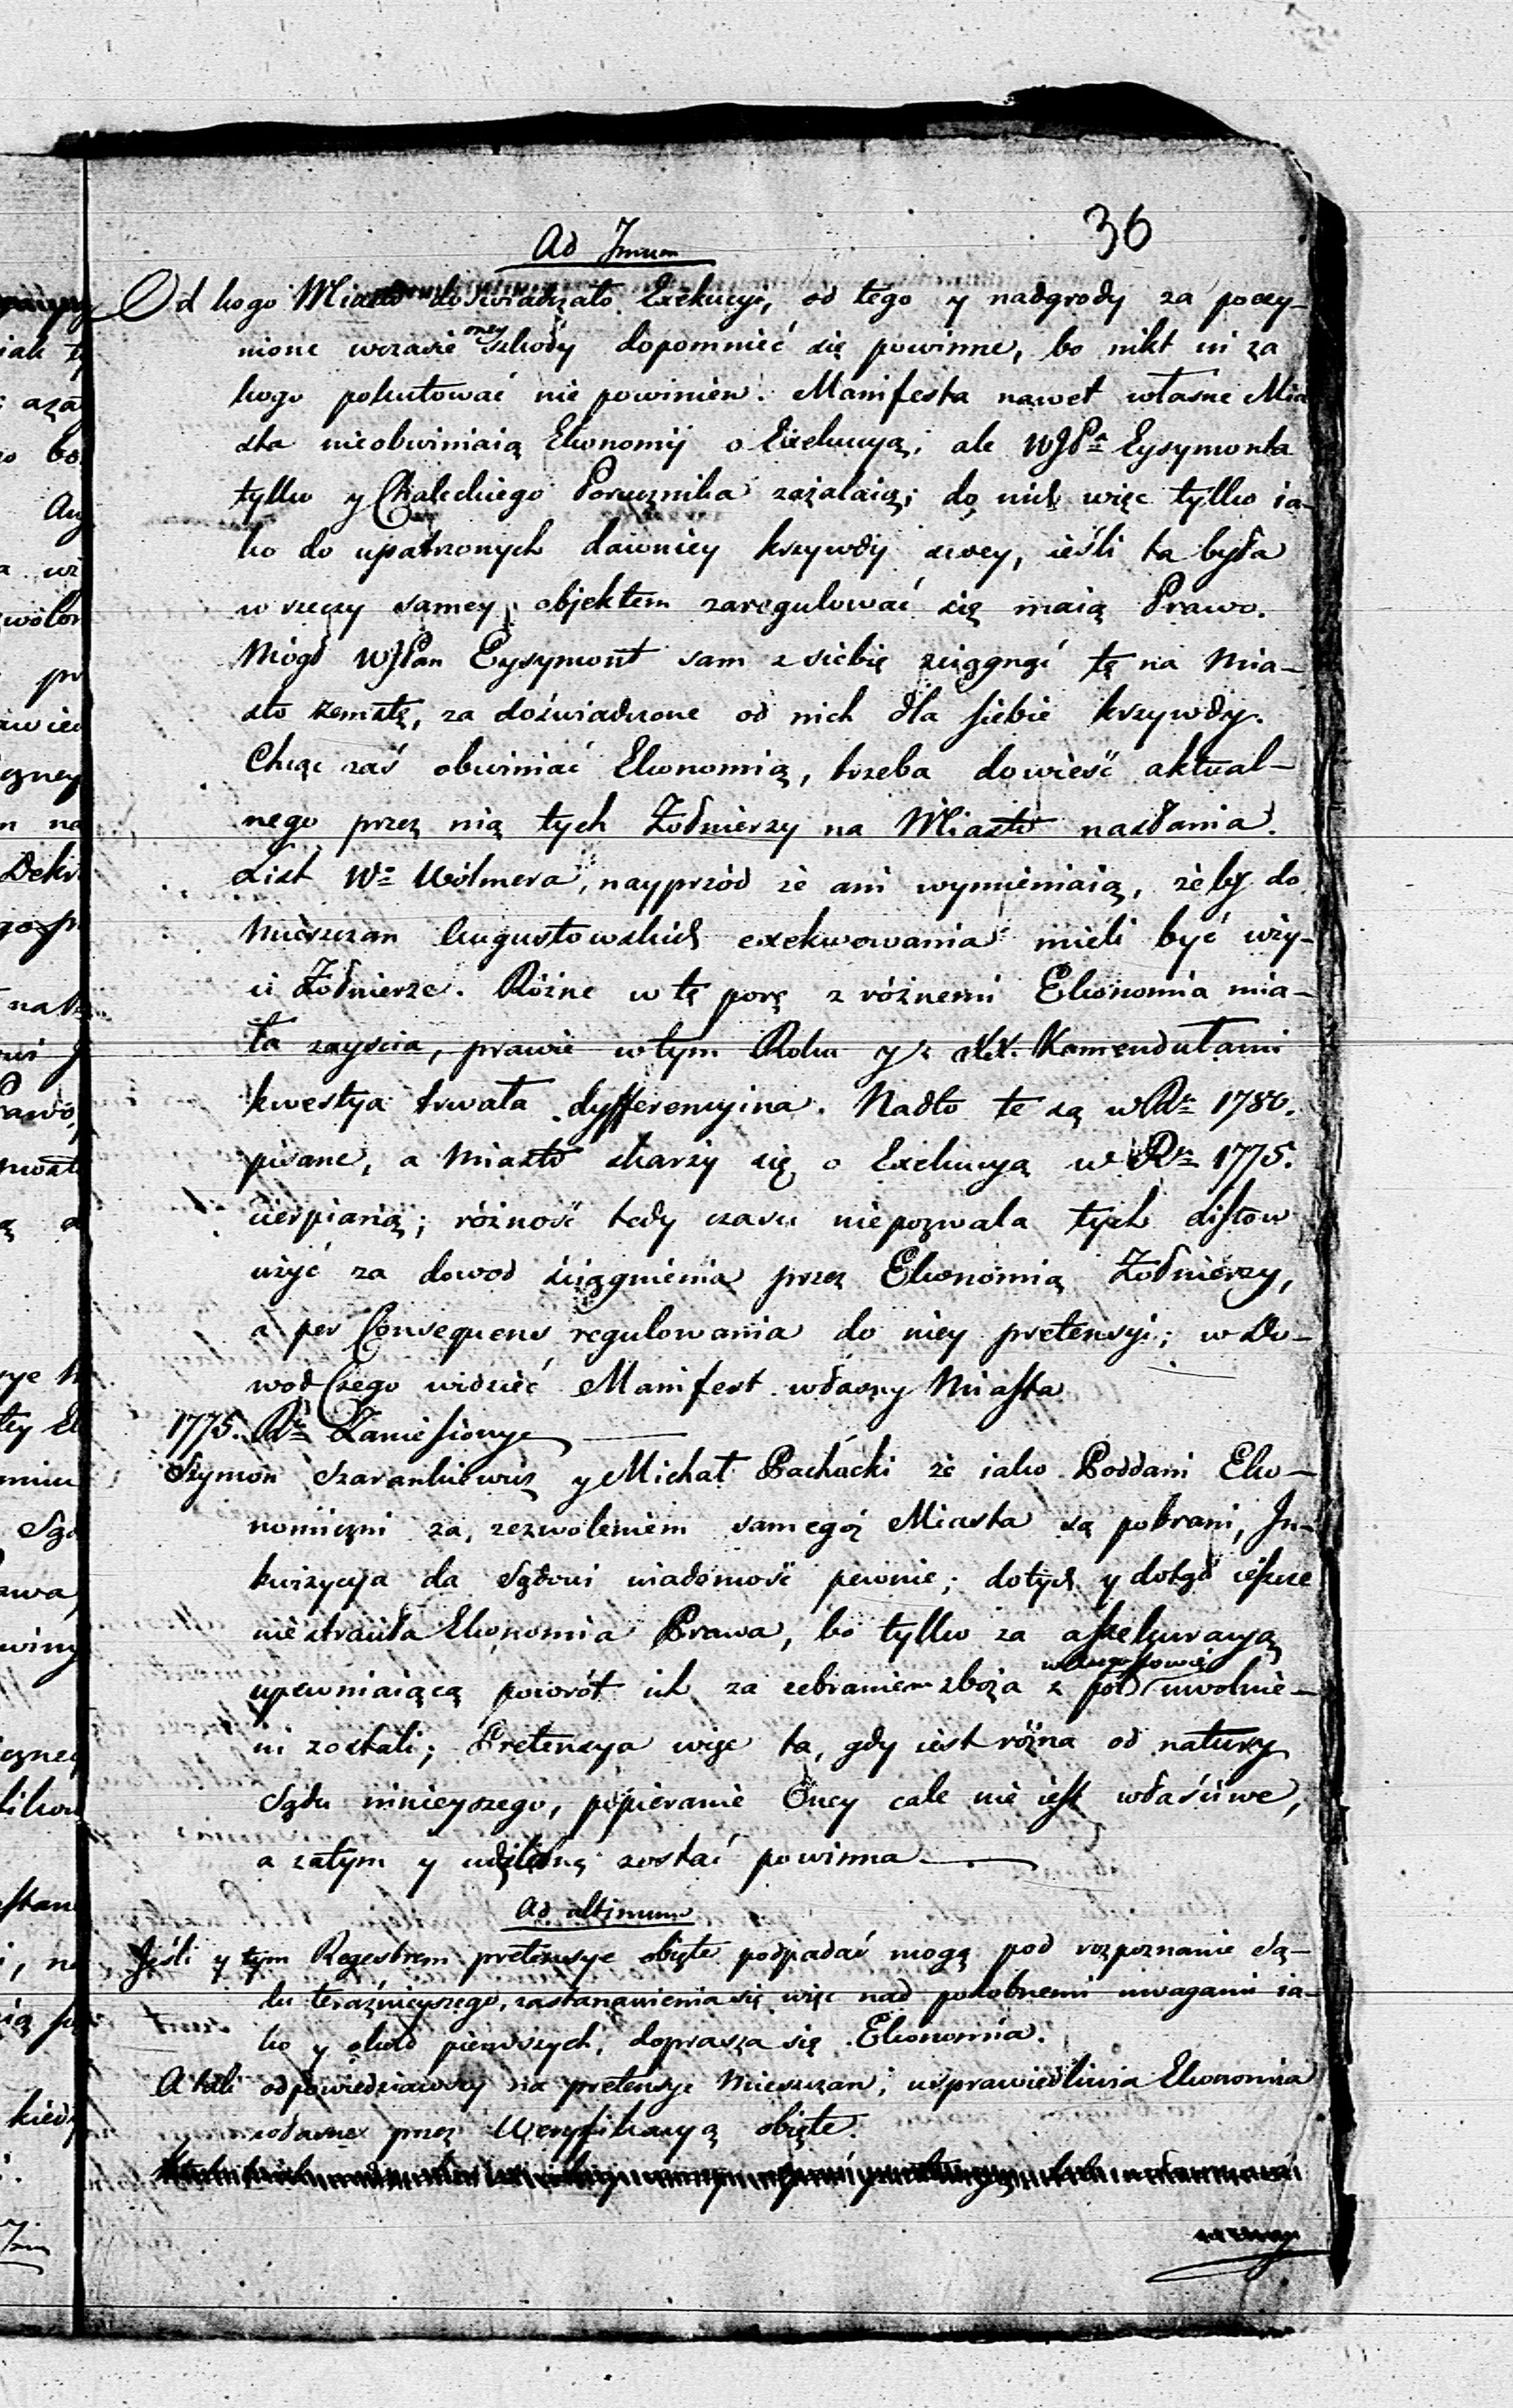 36
Ad 7mum
Od kogo Miasto doswiadczało Exekucyi, od tego y nadgrody za poczy-
nione wczasie oney szkody dopomnieć się powinne, bo nikt ni za
kogo pokutować nie powinien. Manifesta nawet własne Mia
sta nieobwiniaią Ekonomij o Exekucyą, ale WJPa Eysymonta
tylko y Chaleckiego Porucznika zażalaią; do nich więc tylko ia-
ko do upatrzonych dawniey krzywdy swey, ieśli ta była
w rzeczy samey, objektem zaregulować się maią Prawo.
Mógł WJPan Eysymont sam z siebie ściągnąć tę na Mia-
sto zemstę, za doświadczone od nich dla siebie krzywdy.
Chcąc zaś obwiniać Ekonomią, trzeba dowieść aktual-
nego przez nią tych Żołnierzy na Miasto nasłania.
List Wo Wólmera, nayprzód że ani wymieniaią, żeby do
Mieszczan Augustowskich exekwowania mieli być uży-
ci Żołnierze. Różne w tę porę z różnemi Ekonomia mia-
ła zayscia, prawie wtym Roku y z XX. Kamendułami
kwestya trwała dyfferencyina. Nadto te są w Ru 1780.
pisane, a Miasto skarży się o Exekucyą w Ru 1775.
cierpianą; różność tedy czasu niepozwala tych listow
użyć za dowod ściągnienia przez Ekonomią Żołnierzy,
a per Consequens regulowania do niey pretensyi; w Do-
wod czego widzieć Manifest własny Miasta
1775. Ru Zaniesiony
Szymon Szarankiewicz y Michał Pachucki że iako Poddani Eko-
nomiczni za zezwoleniem samegóż Miasta są pobrani, In-
kwizycya da Sądowi wiadomość pewnie; dotych y dotąd ieszcze
niestraciła Ekonomia Prawa, bo tylko za assekuracyą
upewniaiącą powrót ich za zebraniem zboża z pól uwolnie-
ni zostali; Pretensya więc ta, gdy iest różna od natury
Sądu ninieyszego, popieranie Oney cale nie iest właściwe,
a zatym y zostać powinna
Ad ultimum
Jeśli y tym Regestrem pretensye obięte podpadać mogą pod rozpoznanie Są-
du teraźnieyszego, zastanawienia się więc nad podobnemi uwagami ia-
ko y około pierwszych, doprasza się Ekonomia.
A tak odpowiedziawszy na pretensye Mieszczan, usprawiedliwia Ekonomia
własne przez Weryfikacyą obięte.